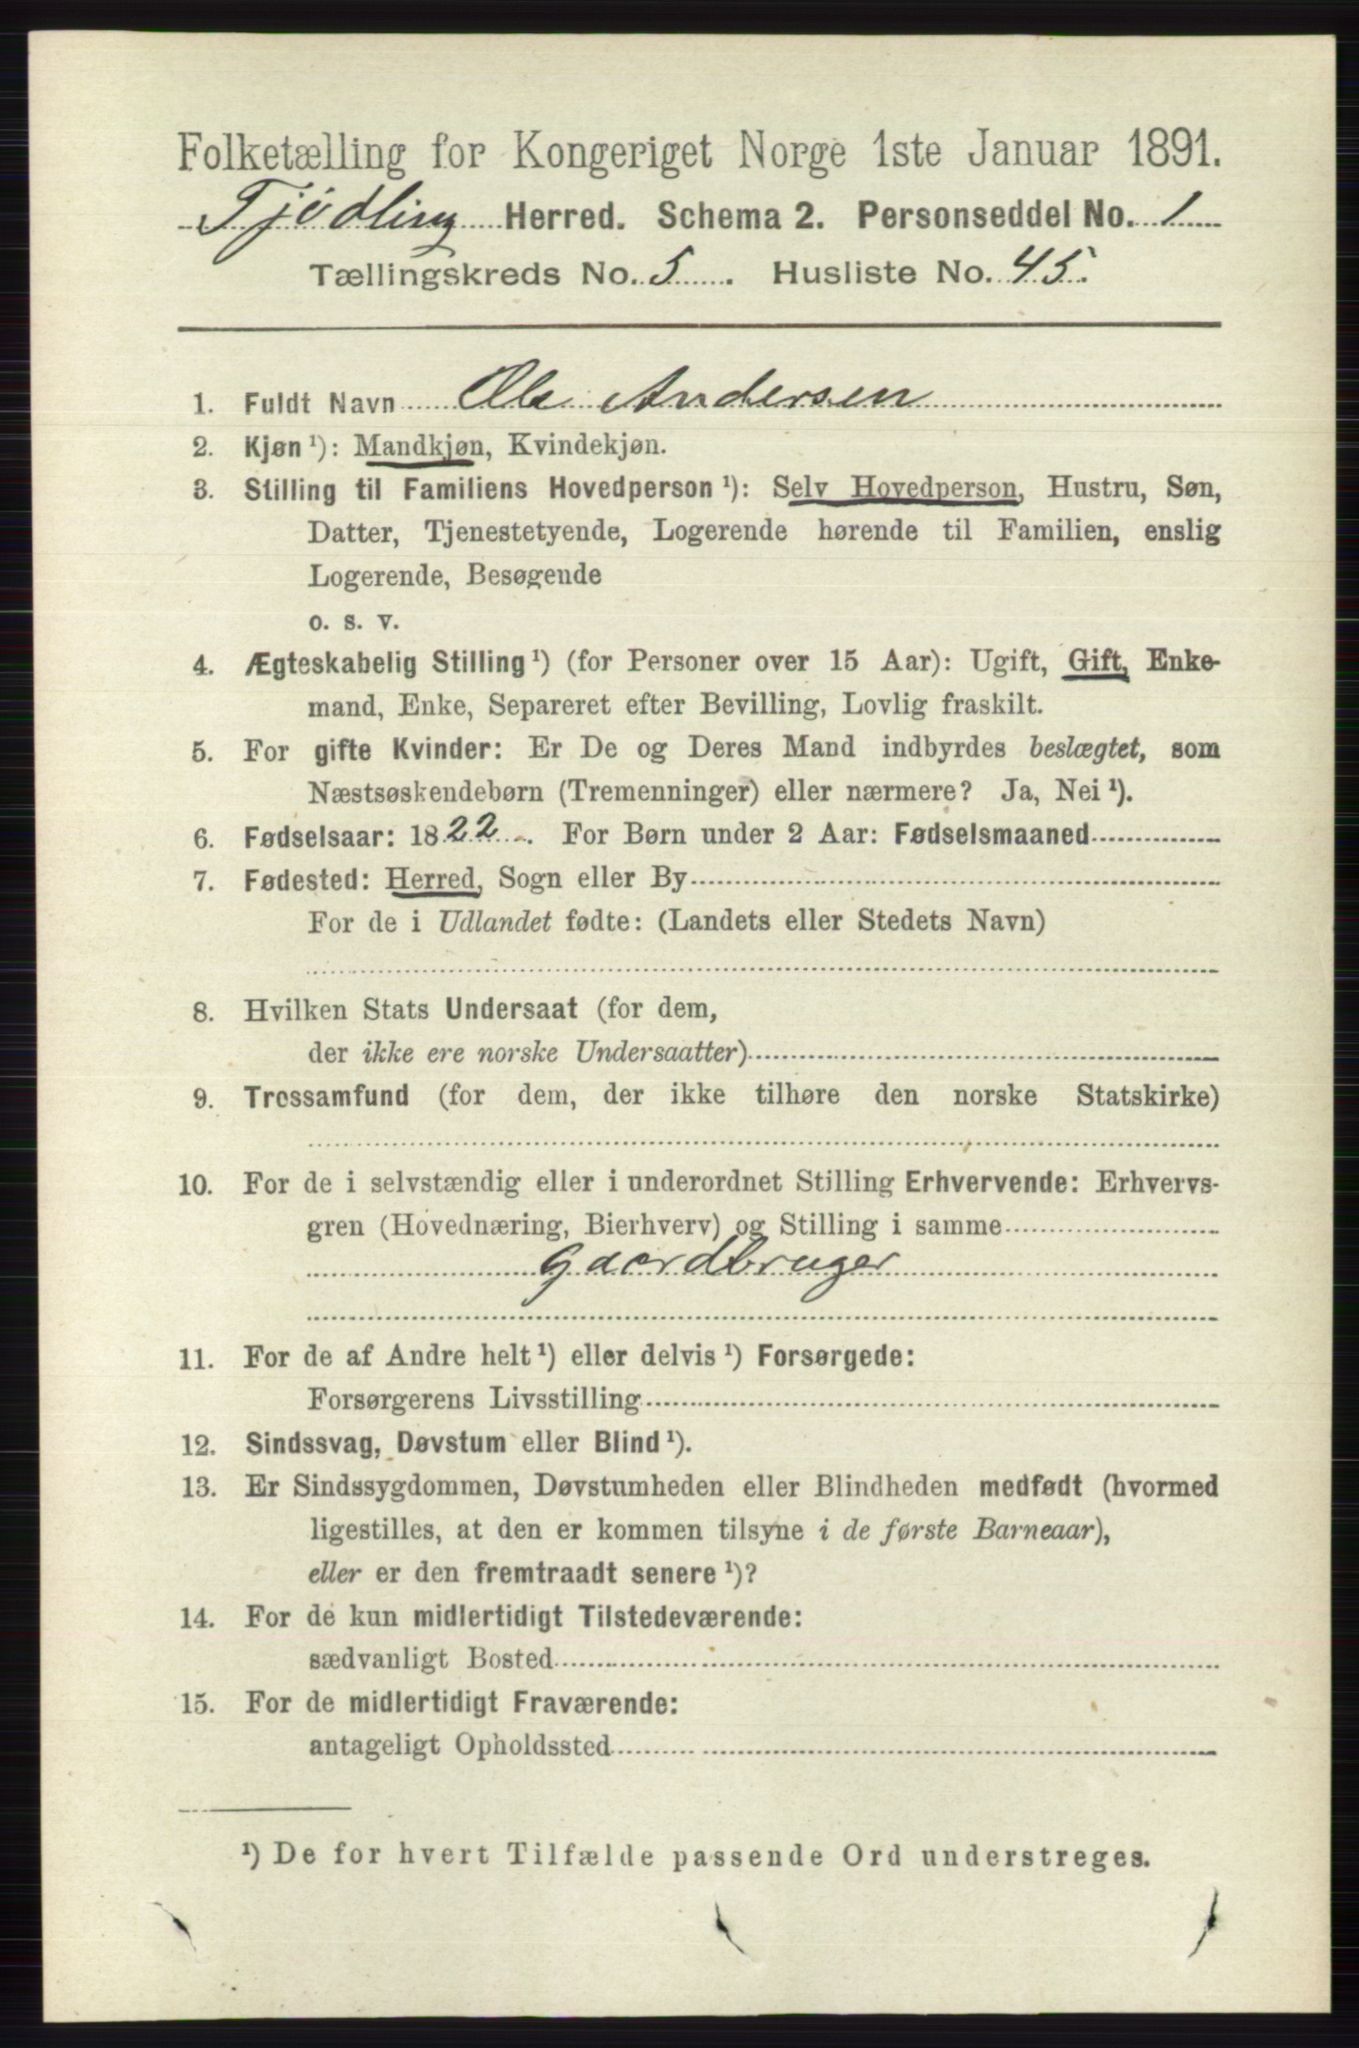 Folketælling for Kongeriget Norge 1ste Januar 1891.
Tjødling Herred. Schema 2. Personseddel No. 1
Tællingskreds No. 5. Husliste No. 45.
1. Fuldt Navn Ole Andersen
2. Kjøn ¹): Mandkjøn, Kvindekjøn.
3. Stilling til Familiens Hovedperson ¹): Selv Hovedperson, Hustru, Søn,
Datter, Tjenestetyende, Logerende hørende til Familien, enslig
Logerende, Besøgende
o. s. v.
4. Ægteskabelig Stilling ¹) (for Personer over 15 Aar): Ugift, Gift, Enke-
mand, Enke, Separeret efter Bevilling, Lovlig fraskilt.
5. For gifte Kvinder: Er De og Deres Mand indbyrdes beslægtet, som
Næstsøskendebørn (Tremenninger) eller nærmere? Ja, Nei ¹).
6. Fødselsaar: 1822. For Børn under 2 Aar: Fødselsmaaned
7. Fødested: Herred, Sogn eller By
For de i Udlandet fødte: (Landets eller Stedets Navn)
8. Hvilken Stats Undersaat (for dem,
der ikke ere norske Undersaatter)
9. Trossamfund (for dem, der ikke tilhøre den norske Statskirke)
10. For de i selvstændig eller i underordnet Stilling Erhvervende: Erhvervs-
gren (Hovednæring, Bierhverv) og Stilling i samme
Gaardbruger
11. For de af Andre helt ¹) eller delvis ¹) Forsørgede:
Forsørgerens Livsstilling
12. Sindssvag, Døvstum eller Blind ¹).
13. Er Sindssygdommen, Døvstumheden eller Blindheden medfødt (hvormed
ligestilles, at den er kommen tilsyne i de første Barneaar),
eller er den fremtraadt senere ¹)?
14. For de kun midlertidigt Tilstedeværende:
sædvanligt Bosted
15. For de midlertidigt Fraværende:
antageligt Opholdssted
¹) De for hvert Tilfælde passende Ord understreges.